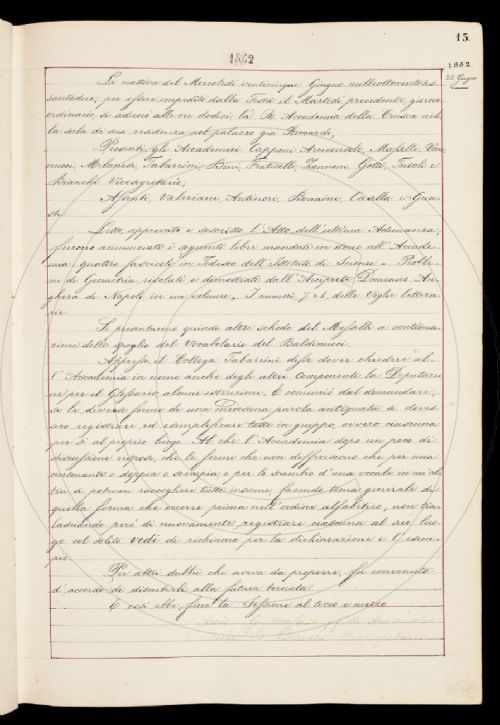 15.
1862
1862
25. Giugno
La mattina del Mercoledì venticinque Giugno milleottocentoses-
santadue, per essere impedito dalla Festa il Martedì precedente giorno
ordinario, si adunò alle ore dodici la R. Accademia della Crusca nel-
la sala di sua residenza nel palazzo già Riccardi;
Presenti gli Accademici Capponi Arciconsolo, Masselli, Van-
nucci, Milanesi, Tabarrini, Bini, Fraticelli, Zannoni, Gotti, Tortoli e
Bianchi Vicesegretario;
Assenti, Valeriani, Antinori, Bonaini, Casella e Gua-
sti.
Letto, approvato e soscritto l'Atto dell'ultima Adunanza,
furono annunziati i seguenti libri mandati in dono all'Accade-
mia: quattro fascicoli in Tedesco dell'Istituto di Scienze - Proble-
mi di Geometria risoluti e dimostrati dall'Arciprete Domenico An-
gherà di Napoli in un volume - I numeri 7 e 8 delle Veglie lettera-
rie.
Si presentarono quindi altre schede del Masselli a continua-
zione dello spoglio del Vocabolario del Baldinucci.
Appresso il Collega Tabarrini disse dover chiedere al-
l'Accademia in nome anche degli altri componenti la Deputazio-
ne per il Glossario, alcune istruzioni. E cominciò dal domandare,
se le diverse forme di una medesima parola antiquata si doves-
sero registrare ed esemplificare tutte in gruppo, ovvero ciascuna
per sè al proprio luogo. Al che l'Accademia dopo un poco di
discussione rispose, che le forme che non differiscono che per una
consonante o doppia o scempia o per lo scambio d'una vocale in un'al-
tra si potevan raccogliere tutte insieme facendo tema generale di
quella forma che occorre prima nell'ordine alfabetico, non tra-
lasciando però di nuovamente registrare ciascuna al suo luo-
go col solito vedi di richiamo per la dichiarazione e gli esem-
pi.
Per altri dubbi che aveva da proporre, fu convenuto
d'accordo di discuterli alla futura tornata.
E così Ebbe fine la Sessione al tocco e mezzo.